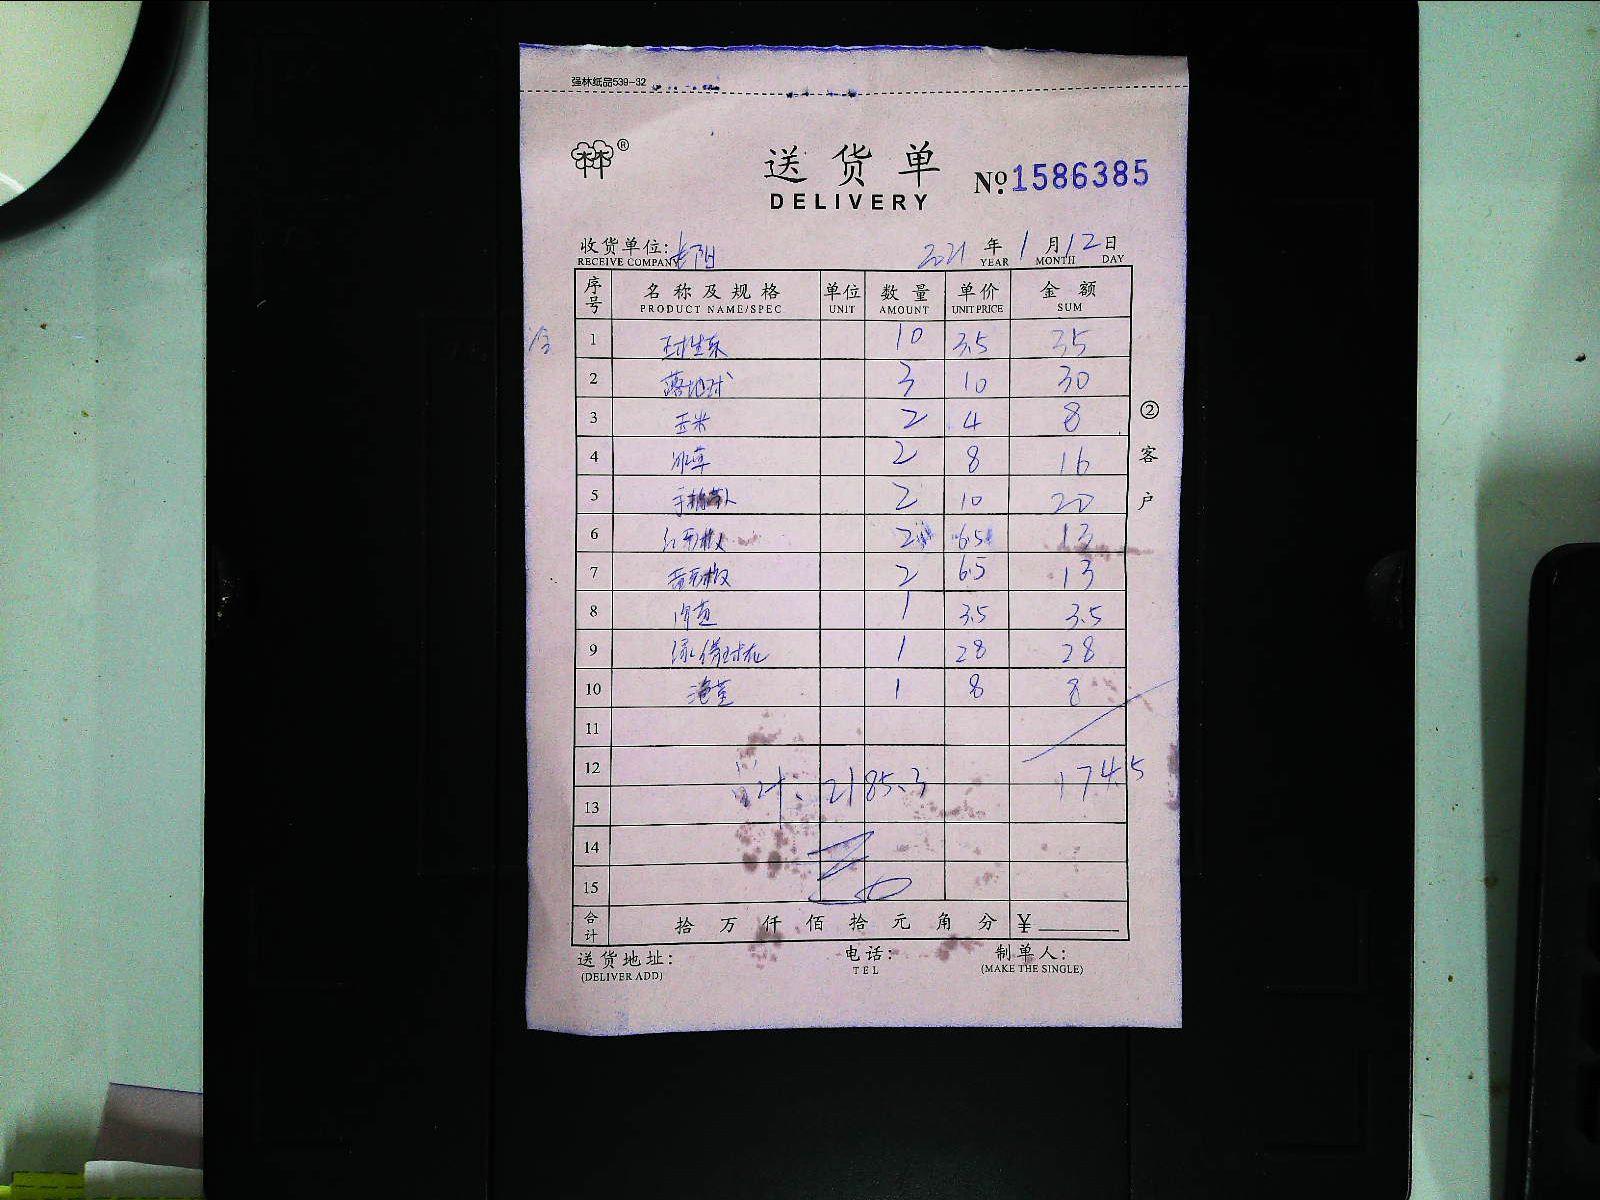 强林纸品539-32
林®
送货单
DELIVERY
№ 1586385
收货单位: 2021 年 1 月 12 日
RECEIVE COMPANY YEAR MONTH DAY
序号 名称及规格 单位 数量 单价 金额
PRODUCT NAME/SPEC UNIT AMOUNT UNIT PRICE SUM
1 球生菜 10 3.5 35
2 落地球 3 10 30
3 玉米 2 4 8
4 冰草 2 8 16
5 2 10 20
6 2 6.5 13
7 2 6.5 13
8 1 3.5 3.5
9 1 28 28
10 1 8 8
11
12
计: 2185.3 174.5
13
14
15
合计 拾 万 仟 佰 拾 元 角 分 ¥
送货地址: 电话: 制单人:
(DELIVER ADD) TEL (MAKE THE SINGLE)
②客户